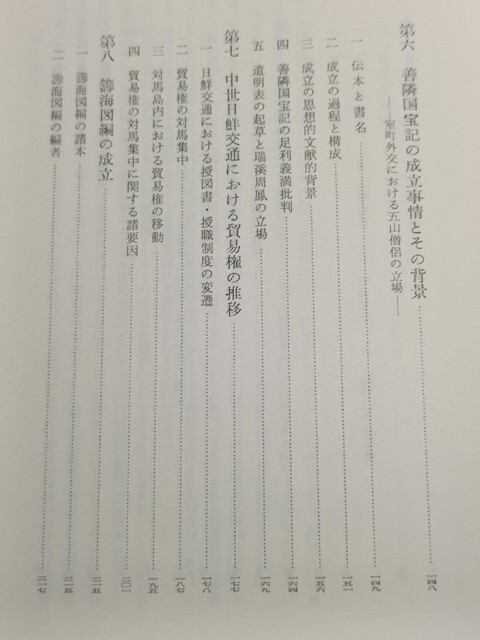 第六　善隣国宝記の成立事情とその背景……一四八
――室町外交における五山僧侶の立場――
一　伝本と書名……一四九
二　成立の過程と構成……一五一
三　成立の思想的文献的背景……一五六
四　善隣国宝記の足利義満批判……一六四
五　遣明表の起草と瑞溪周鳳の立場……一六九
第七　中世日鮮交通における貿易権の推移……一七七
一　日鮮交通における授図書・授職制度の変遷……一七八
二　貿易権の対馬集中……一八七
三　対馬島内における貿易権の移動……一九五
四　貿易権の対馬集中に関する諸要因……二〇一
第八　籌海図編の成立……二一五
一　籌海図編の諸本……二一五
二　籌海図編の編者……二一七